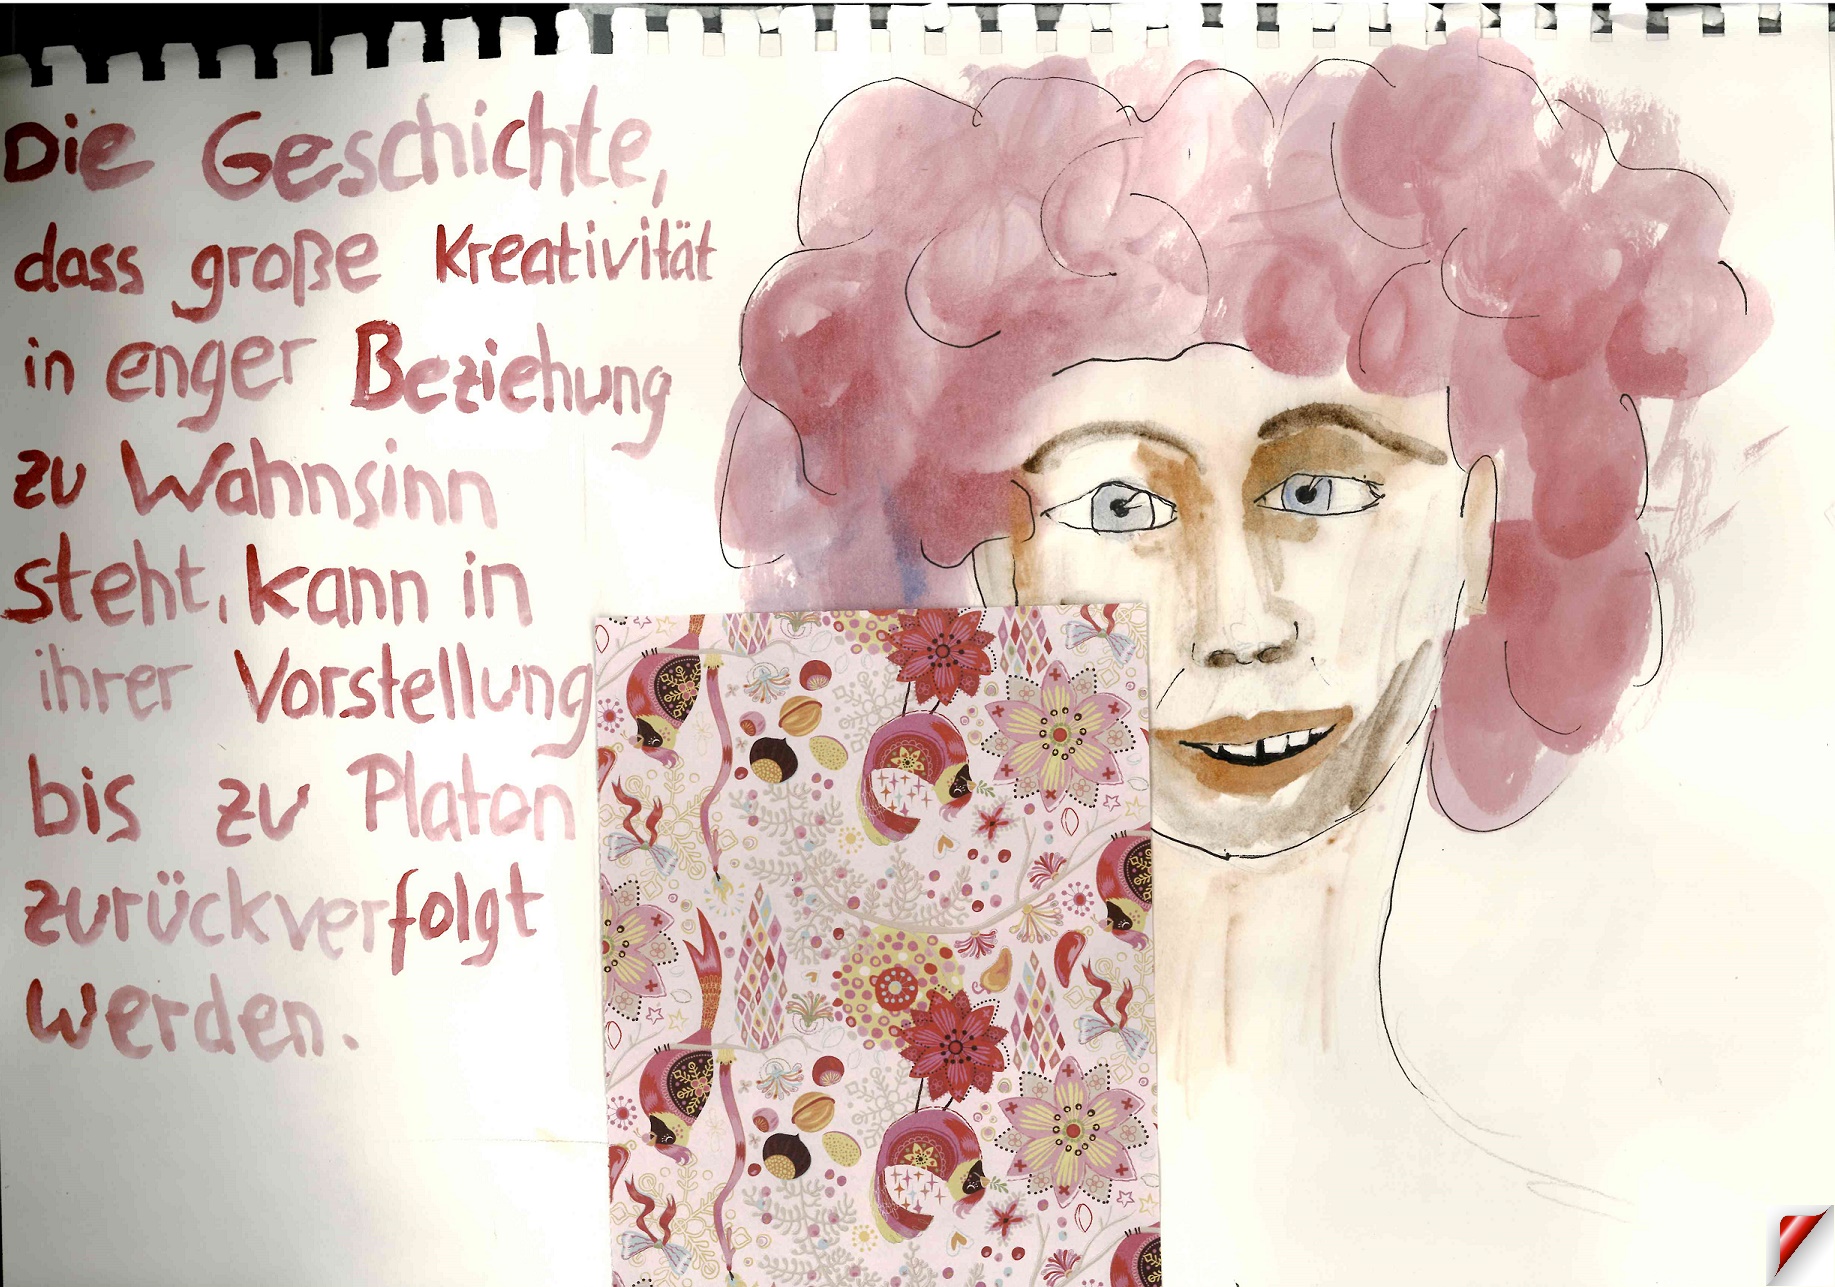 Die Geschichte,
dass große Kreativität
in enger Beziehung
zu Wahnsinn
steht, kann in
ihrer Vorstellung
bis zu Platon
zurückverfolgt
werden.